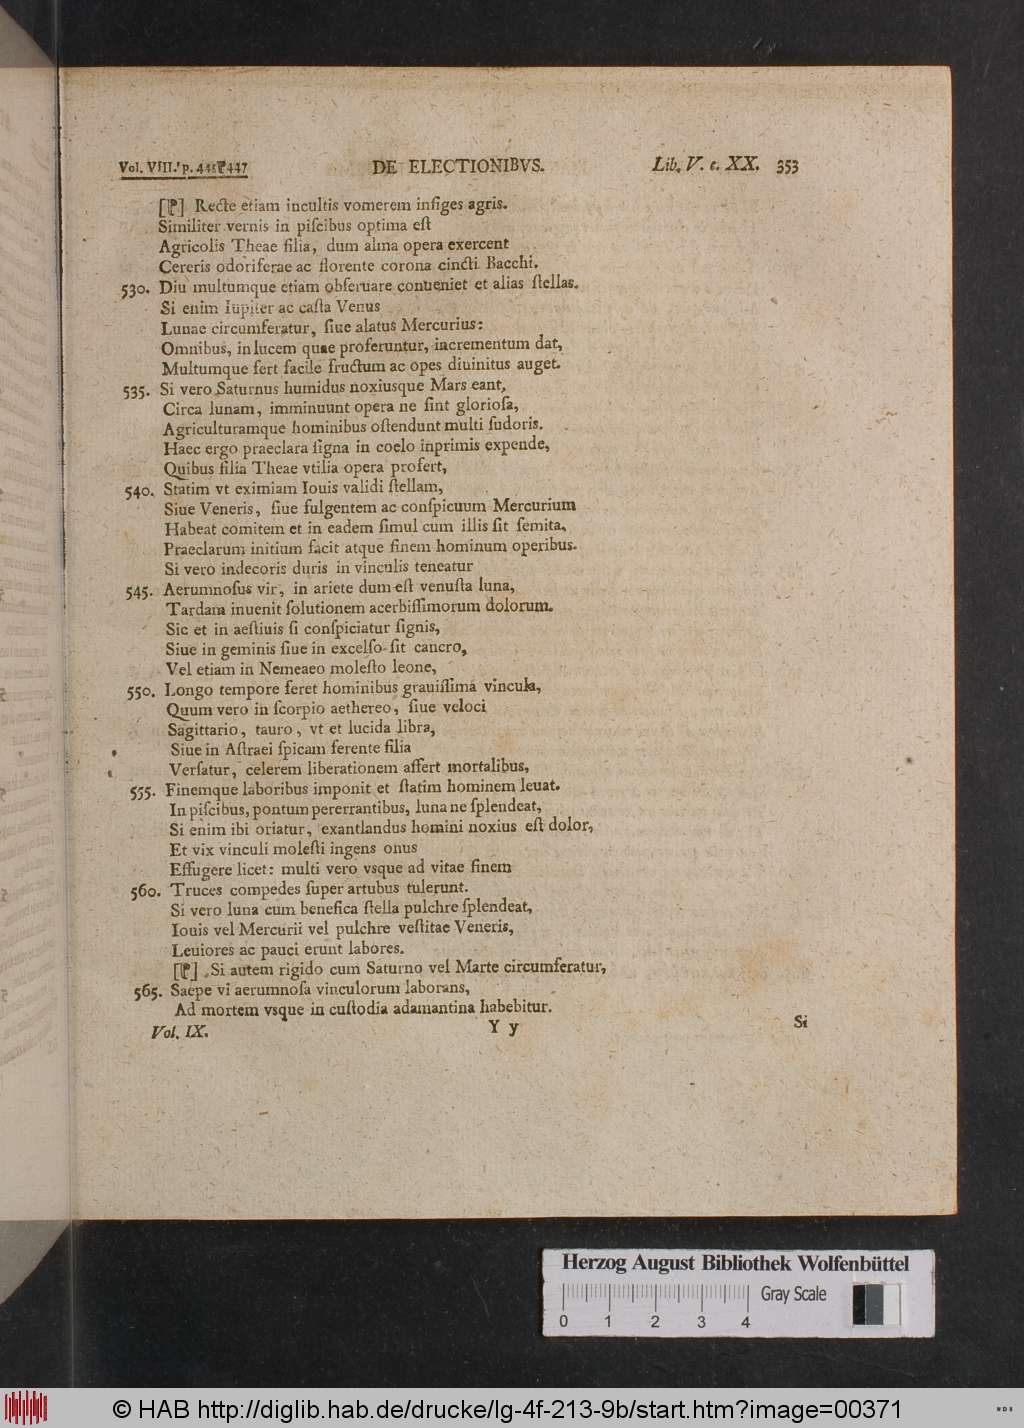 Vol. VIII. p. 446 447 DE ELECTIONIBVS. Lib. V. c. XX. 353
[⁋] Recte etiam incultis vomerem infiges agris.
Similiter vernis in piſcibus optima eſt
Agricolis Theae filia, dum alma opera exercent
Cereris odoriferae ac florente corona cincti Bacchi.
530. Diu multumque etiam obſeruare conueniet et alias ſtellas.
Si enim Iupiter ac caſta Venus
Lunae circumferatur, ſiue alatus Mercurius:
Omnibus, in lucem quae proferuntur, incrementum dat,
Multumque fert facile fructum ac opes diuinitus auget.
535. Si vero Saturnus humidus noxiusque Mars eant,
Circa lunam, imminuunt opera ne ſint glorioſa,
Agriculturamque hominibus oſtendunt multi ſudoris.
Haec ergo praeclara ſigna in coelo inprimis expende,
Quibus filia Theae vtilia opera profert,
540. Statim vt eximiam Iouis validi ſtellam,
Siue Veneris, ſiue fulgentem ac conſpicuum Mercurium
Habeat comitem et in eadem ſimul cum illis ſit ſemita,
Praeclarum initium facit atque finem hominum operibus.
Si vero indecoris duris in vinculis teneatur
545. Aerumnoſus vir, in ariete dum eſt venuſta luna,
Tardam inuenit ſolutionem acerbiſſimorum dolorum.
Sic et in aeſtiuis ſi conſpiciatur ſignis,
Siue in geminis ſiue in excelſo ſit cancro,
Vel etiam in Nemeaeo moleſto leone,
550. Longo tempore feret hominibus grauiſſima vincula,
Quum vero in ſcorpio aethereo, ſiue veloci
Sagittario, tauro, vt et lucida libra,
Siue in Aſtraei ſpicam ferente filia
Verſatur, celerem liberationem affert mortalibus,
555. Finemque laboribus imponit et ſtatim hominem leuat.
In piſcibus, pontum pererrantibus, luna ne ſplendeat,
Si enim ibi oriatur, exantlandus homini noxius eſt dolor,
Et vix vinculi moleſti ingens onus
Effugere licet: multi vero vsque ad vitae finem
560. Truces compedes ſuper artubus tulerunt.
Si vero luna cum benefica ſtella pulchre ſplendeat,
Iouis vel Mercurii vel pulchre veſtitae Veneris,
Leuiores ac pauci erunt labores.
[⁋] Si autem rigido cum Saturno vel Marte circumferatur,
565. Saepe vi aerumnoſa vinculorum laborans,
Ad mortem vsque in cuſtodia adamantina habebitur.
Vol. IX. Y y Si
Herzog August Bibliothek Wolfenbüttel
Gray Scale
0 1 2 3 4
© HAB http://diglib.hab.de/drucke/lg-4f-213-9b/start.htm?image=00371